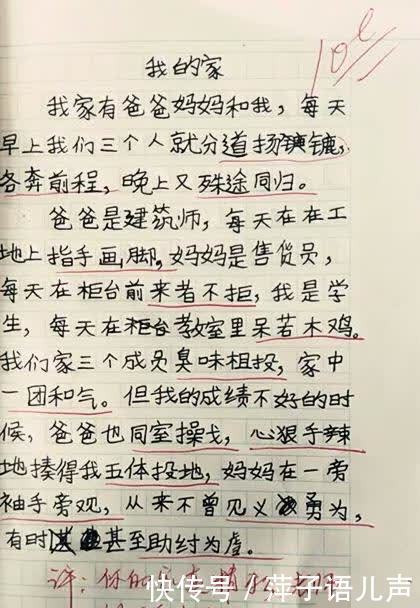 10
我的家
我家有爸爸妈妈和我，每天
早上我们三个人就分道扬镳，
各奔前程，晚上又殊途同归。
爸爸是建筑师，每天在在工
地上指手画脚，妈妈是售货员，
每天在柜台前来者不拒，我是学
生，每天在柜台教室里呆若木鸡。
我们家三个成员臭味相投，家中
一团和气。但我的成绩不好的时
候，爸爸也同室操戈，心狠手辣
地揍得我五体投地，妈妈在一旁
袖手旁观，从来不曾见义勇为，
有时甚至助纣为虐。
评：你的
快传号／萍子语儿声